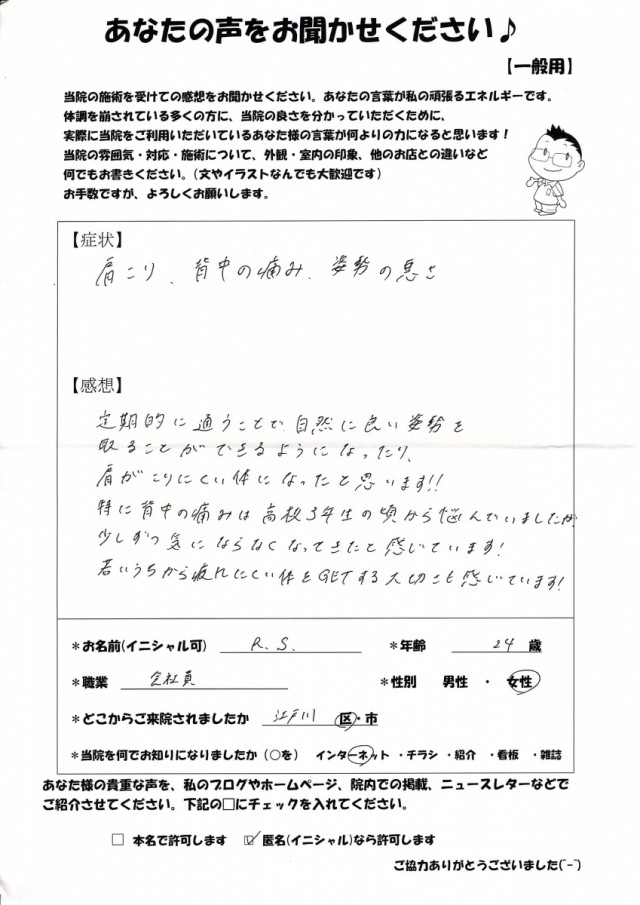 あなたの声をお聞かせください♪
【一般用】
当院の施術を受けての感想をお聞かせください。あなたの言葉が私の頑張るエネルギーです。
体調を崩されている多くの方に、当院の良さを分かっていただくために、
実際に当院をご利用いただいているあなた様の言葉が何よりの力になると思います！
当院の雰囲気・対応・施術について、外観・室内の印象、他のお店との違いなど
何でもお書きください。(文やイラストなんでも大歓迎です)
お手数ですが、よろしくお願いします。
【症状】
肩こり、背中の痛み、姿勢の悪さ
【感想】
定期的に通うことで、自然に良い姿勢を
取ることができるようになったり、
肩がこりにくい体になったと思います!!
特に背中の痛みは高校3年生の頃から悩んでいましたが
少しずつ気にならなくなってきたと感じています!
若いうちから疲れにくい体をGETする大切さも感じています!
＊お名前(イニシャル可) R.S. ＊年齢 24 歳
＊職業 会社員 ＊性別 男性 ・ 女性
＊どこからご来院されましたか 江戸川 区・市
＊当院を何でお知りになりましたか（○を） インターネット ・チラシ ・紹介 ・看板 ・雑誌
あなた様の貴重な声を、私のブログやホームページ、院内での掲載、ニュースレターなどで
ご紹介させてください。下記の□にチェックを入れてください。
□ 本名で許可します ☑ 匿名(イニシャル)なら許可します
ご協力ありがとうございました(^-^)